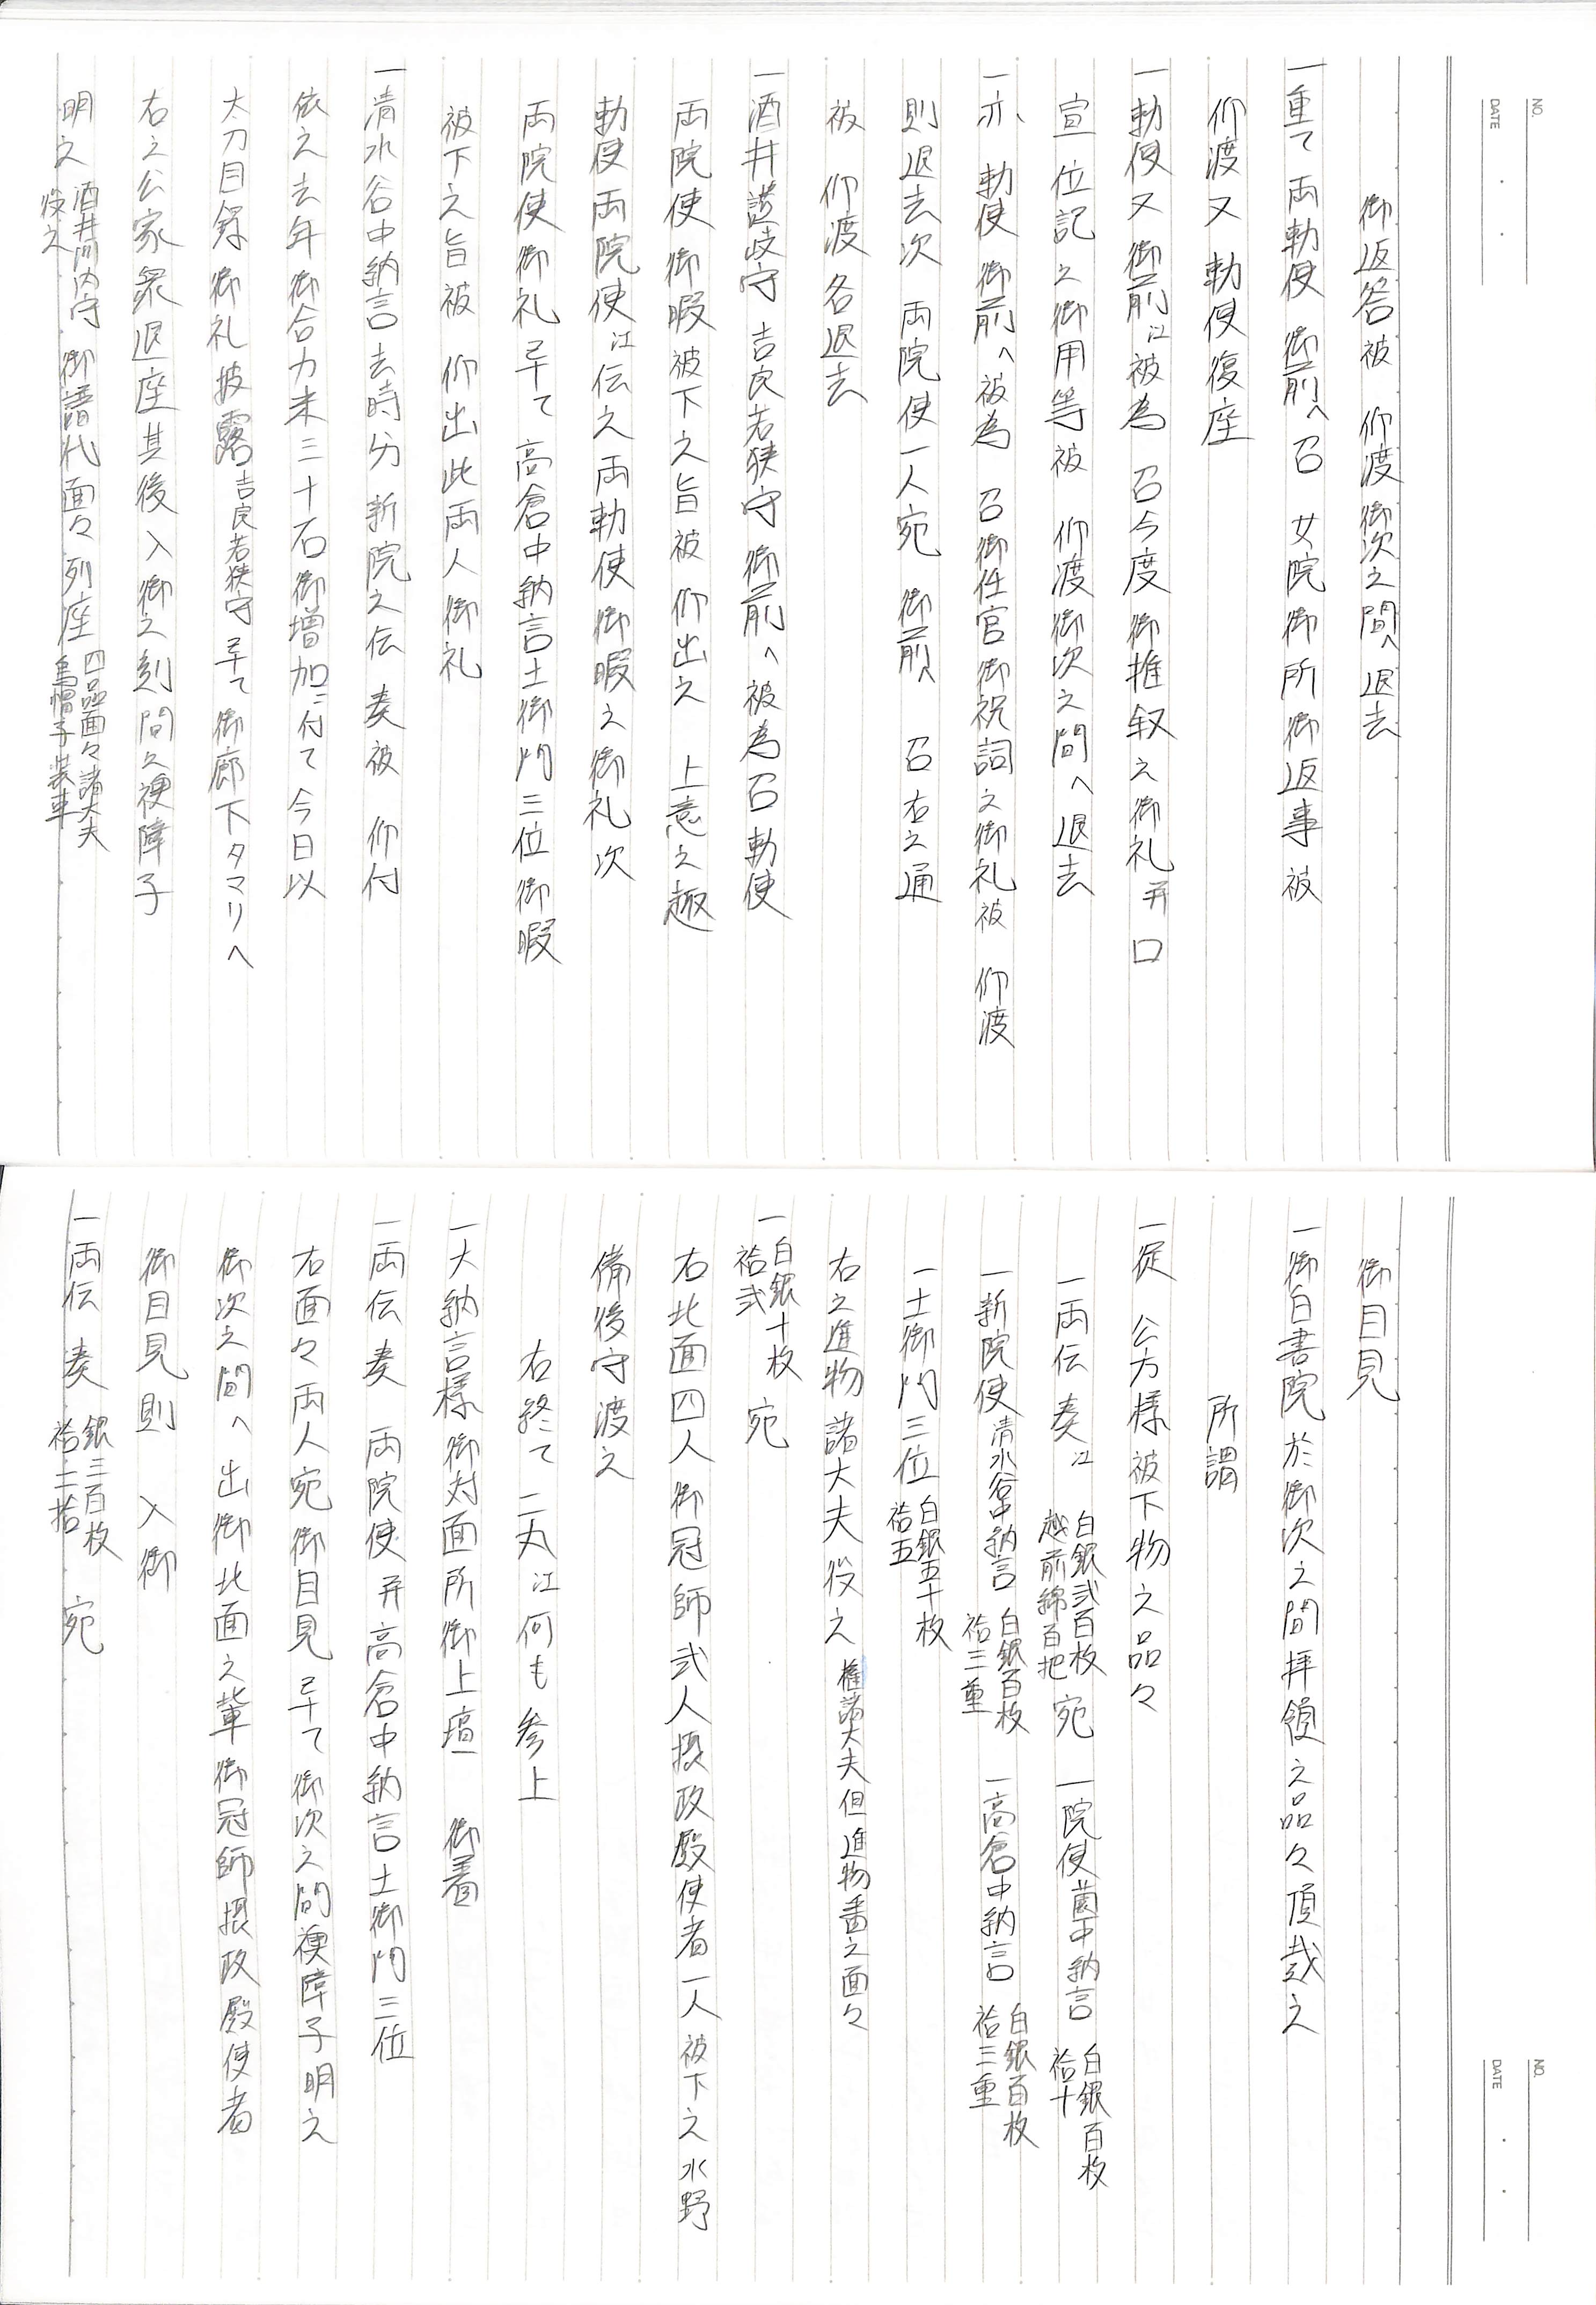 NO.
DATE
御返答被 仰渡御次之間へ退去
一重て両勅使 御前へ召 女院御所御返事被
仰渡又 勅使復座
一勅使又御前江被為 召今度御推叙之御礼并口
宣位記之御用等被 仰渡御次之間へ退去
一亦 勅使 御前へ被為 召御任官御祝詞之御礼被 仰渡
則退去次 両院使一人宛 御前へ 召右之通
被 仰渡各退去
一酒井讃岐守 吉良若狭守御前へ被為召勅使
両院使御暇被下之旨被 仰出之 上意之趣
勅使両院使江伝之両勅使御暇之御礼次
両院使御礼畢て高倉中納言土御門三位御暇
被下之旨被 仰出此両人御礼
一清水谷中納言去時分 新院之伝奏被 仰付
依之去年御合力米三十石御増加ニ付て今日以
太刀目録御礼披露吉良若狭守畢て御廊下タマリへ
右之公家衆退座其後入御之刻間之襖障子
明之 酒井河内守 御譜代面々列座 四品面々諸大夫
役之 烏帽子装束
NO.
DATE
御目見
一御白書院於御次之間拝領之品々頂戴之
所謂
一従 公方様被下物之品々
一両伝奏江 白銀弐百枚 宛 一院使薗中納言 白銀百枚
越前綿百把 袷十
一新院使清水谷中納言 白銀百枚 一高倉中納言 白銀百枚
袷三重 袷三重
一土御門三位 白銀五十枚
袷五
右之進物諸大夫役之 雖諸大夫但進物番之面々
一白銀十枚 宛
袷弐
右北面四人御冠師弐人摂政殿使者一人被下之水野
備後守渡之
右終て二丸江何も参上
一大納言様御対面所御上壇 御着
一両伝奏 両院使并高倉中納言土御門三位
右面々両人宛御目見畢て御次之間襖障子明之
御次之間へ出御北面之輩御冠師摂政殿使者
御目見則 入御
一両伝奏 銀三百枚 宛
袷二拾